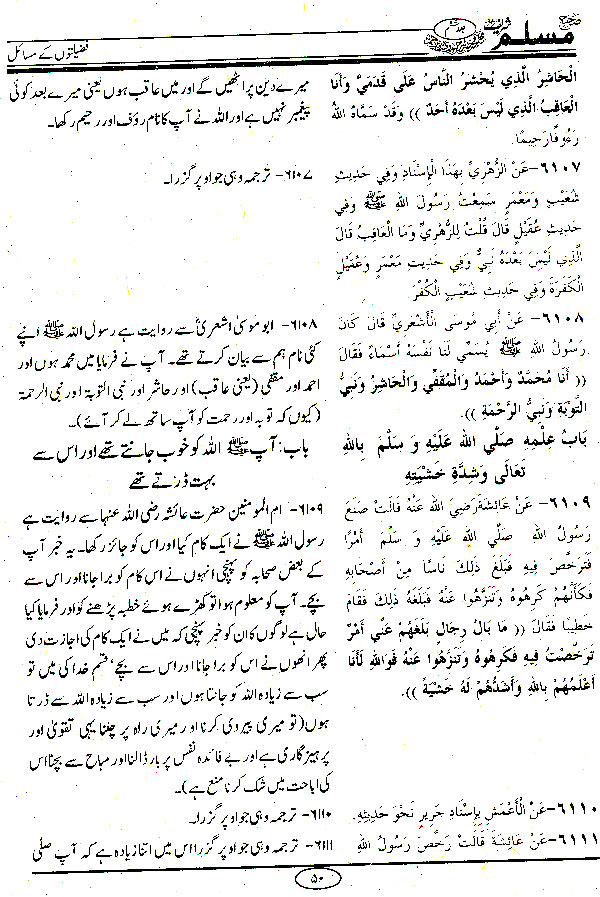 صحیح مسلم شریف
جلد ششم
فضیلتوں کے مسائل
الْحَاشِرُ الَّذِي يُحْشَرُ النَّاسُ عَلَى قَدَمَيَّ وَأَنَا
الْعَاقِبُ الَّذِي لَيْسَ بَعْدَهُ أَحَدٌ )) وَقَدْ سَمَّاهُ اللهُ
رَءُوفًا رَحِيمًا.
٦١٠٧- عَنْ الزُّهْرِيِّ بِهَذَا الْإِسْنَادِ وَفِي حَدِيثِ
شُعَيْبٍ وَمَعْمَرٍ سَمِعْتُ رَسُولَ اللهِ ﷺ وَفِي
حَدِيثِ عُقَيْلٍ قَالَ قُلْتُ لِلزُّهْرِيِّ وَمَا الْعَاقِبُ قَالَ
الَّذِي لَيْسَ بَعْدَهُ نَبِيٌّ وَفِي حَدِيثِ مَعْمَرٍ وَعُقَيْلٍ
الْكَفَرَةَ وَفِي حَدِيثِ شُعَيْبٍ الْكُفْرَ
٦١٠٨- عَنْ أَبِي مُوسَى الْأَشْعَرِيِّ قَالَ كَانَ
رَسُولُ اللهِ ﷺ يُسَمِّي لَنَا نَفْسَهُ أَسْمَاءً فَقَالَ
(( أَنَا مُحَمَّدٌ وَأَحْمَدُ وَالْمُقَفِّي وَالْحَاشِرُ وَنَبِيُّ
التَّوْبَةِ وَنَبِيُّ الرَّحْمَةِ )).
بَابُ عِلْمِهِ صَلَّي اللهُ عَلَيْهِ وَ سَلَّمَ بِاللهِ
تَعَالَى وَشِدَّةِ خَشْيَتِهِ
٦١٠٩- عَنْ عَائِشَةَ رَضِيَ اللهُ عَنْهُ قَالَتْ صَنَعَ
رَسُولُ اللهِ صَلَّي اللهُ عَلَيْهِ وَ سَلَّمَ أَمْرًا
فَتَرَخَّصَ فِيهِ فَبَلَغَ ذَلِكَ نَاسًا مِنْ أَصْحَابِهِ
فَكَأَنَّهُمْ كَرِهُوهُ وَتَنَزَّهُوا عَنْهُ فَبَلَغَهُ ذَلِكَ فَقَامَ
خَطِيبًا فَقَالَ (( مَا بَالُ رِجَالٍ بَلَغَهُمْ عَنِّي أَمْرٌ
تَرَخَّصْتُ فِيهِ فَكَرِهُوهُ وَتَنَزَّهُوا عَنْهُ فَوَاللهِ لَأَنَا
أَعْلَمُهُمْ بِاللهِ وَأَشَدُّهُمْ لَهُ خَشْيَةً )).
٦١١٠- عَنْ الْأَعْمَشِ بِإِسْنَادِ جَرِيرٍ نَحْوَ حَدِيثِهِ.
٦١١١- عَنْ عَائِشَةَ قَالَتْ رَخَّصَ رَسُولُ اللهِ
میرے دین پر اٹھیں گے اور میں عاقب ہوں یعنی میرے بعد کوئی
پیغمبر نہیں ہے اور اللہ نے آپ کا نام رؤف اور رحیم رکھا۔
۶۱۰۷- ترجمہ وہی جو اوپر گزرا۔
۶۱۰۸- ابو موسیٰ اشعریؓ سے روایت ہے رسول اللہ ﷺ اپنے
کئی نام ہم سے بیان کرتے تھے۔ آپ نے فرمایا میں محمد ہوں اور
احمد اور مقفی (یعنی عاقب) اور حاشر اور نبی التوبۃ اور نبی الرحمۃ
(کیوں کہ توبہ اور رحمت کو آپ ساتھ لے کر آئے)۔
باب: آپ ﷺ اللہ کو خوب جانتے تھے اور اس سے
بہت ڈرتے تھے
۶۱۰۹- ام المومنین حضرت عائشہ رضی اللہ عنہا سے روایت ہے
رسول اللہ ﷺ نے ایک کام کیا اور اس کو جائز رکھا۔ یہ خبر آپ
کے بعض صحابہ کو پہنچی انہوں نے اس کام کو برا جانا اور اس سے
بچے۔ آپ کو معلوم ہوا تو کھڑے ہوئے خطبہ پڑھنے کو اور فرمایا کیا
حال ہے لوگوں کا ان کو خبر پہنچی کہ میں نے ایک کام کی اجازت دی
پھر انھوں نے اس کو برا جانا اور اس سے بچے قسم خدا کی میں تو
سب سے زیادہ اللہ کو جانتا ہوں اور سب سے زیادہ اللہ سے ڈرتا
ہوں(تو میری پیروی کرنا اور میری راہ پر چلنا یہی تقویٰ اور
پرہیزگاری ہے اور بے فائدہ نفس پر بار ڈالنا اور مباح سے بچنا اس
کی اباحت میں شک کرنا منع ہے)۔
۶۱۱۰- ترجمہ وہی جو اوپر گزرا۔
۶۱۱۱- ترجمہ وہی جو اوپر گزرا اس میں اتنا زیادہ ہے کہ آپ صلی
۵۰